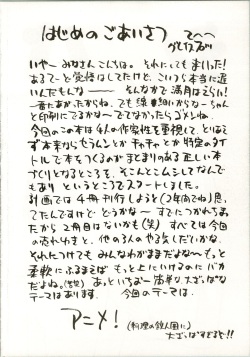 はじめのごあいさつ
いやー みなさんこんちは。それにしてもまいった!
あるてーど覚悟はしてたけど、こいつら本当に遅
いんだもんなー そんな中で満月はえらい!
一番に
と印刷にでるかな〜でてなかったらゴメンね。
今回のこの本は4人の作家性を重視して、とりあえ
ず本来ならもうムンとか チャチャ とか特定のタイ
トルで本をつくるのがまとまりのある正しい本
づくりとなるところを、そこんとこムシしてなんで
もあり というところでスタートしました。
計画では4冊刊行しようと(2年内でね)思っ
てたんですけど どうかな〜すでにつかれちゃっ
たから2冊目はないかも(笑) すべては今回
の売れゆきと、他の3人のやる気しだいかな。
それにつけてもみんなわがままだよな〜もっと
柔軟にふるまえば もっと上にいけるのにバカ
だよね。 あっ、いちおー簡単な大ざっぱな
テーマはあります。 今回のテーマは、
アニメ!
(料理の鉄人風に)
大ざっぱすぎるぞー!!